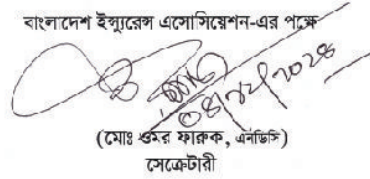 বাংলাদেশ ইন্স্যুরেন্স এসোসিয়েশন-এর পক্ষে
(মোঃ ওমর ফারুক, এনডিসি)
সেক্রেটারী